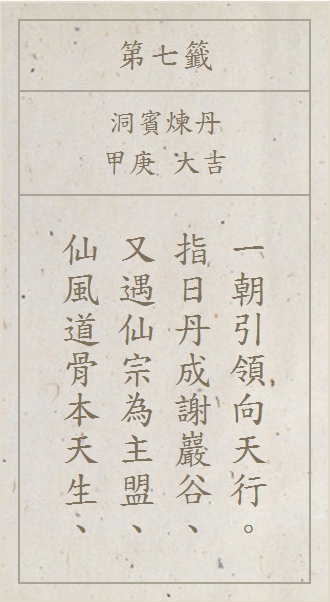 第七籤
洞賓煉丹
甲庚 大吉
仙風道骨本天生、
又遇仙宗為主盟、
指日丹成謝巖谷、
一朝引領向天行。